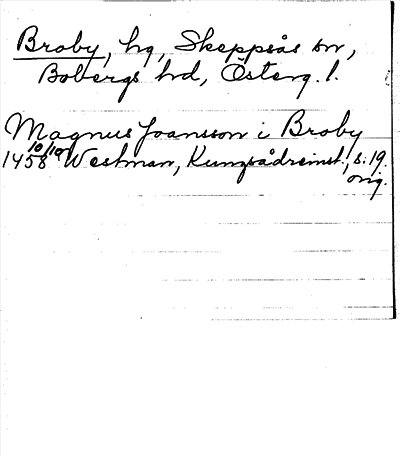 Broby, hg, Skeppsås sn,
Bobergs hd, Österg. l.
Magnus Joansson i Broby
1458 10/10 Westman, Kungsådreinst., s. 19.
orig.